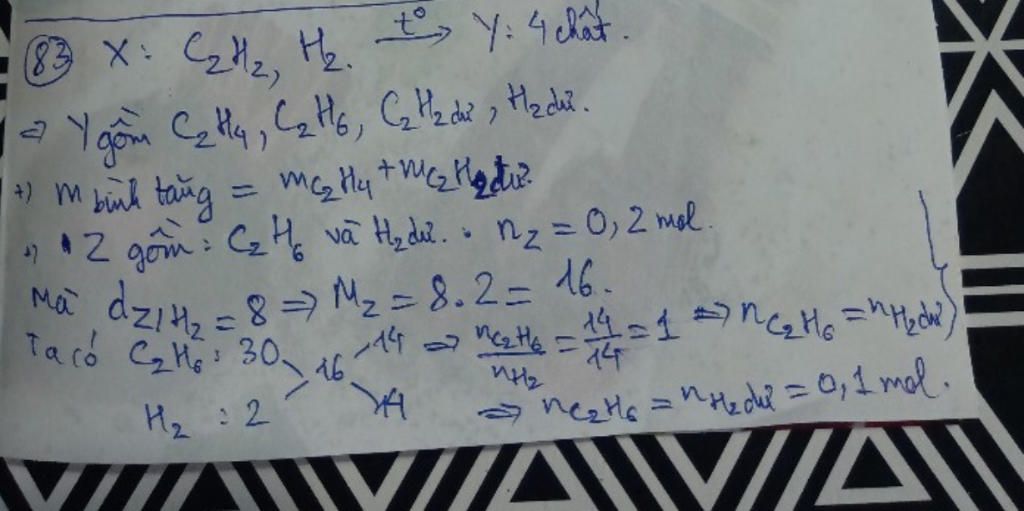 (83) X: C₂H₂, H₂. –t°→ Y: 4 chất.
⇒ Y gồm C₂H₄, C₂H₆, C₂H₂ dư, H₂ dư.
+) m bình tăng = mC₂H₄ + mC₂H₂ dư.
+) Z gồm: C₂H₆ và H₂ dư. • nZ = 0,2 mol.
Mà dZ/H₂ = 8 ⇒ MZ = 8.2 = 16.
Ta có C₂H₆: 30 14 ⇒ nC₂H₆/nH₂ = 14/14 = 1 ⇒ nC₂H₆ = nH₂ dư
16
H₂ : 2 14 ⇒ nC₂H₆ = nH₂ dư = 0,1 mol.